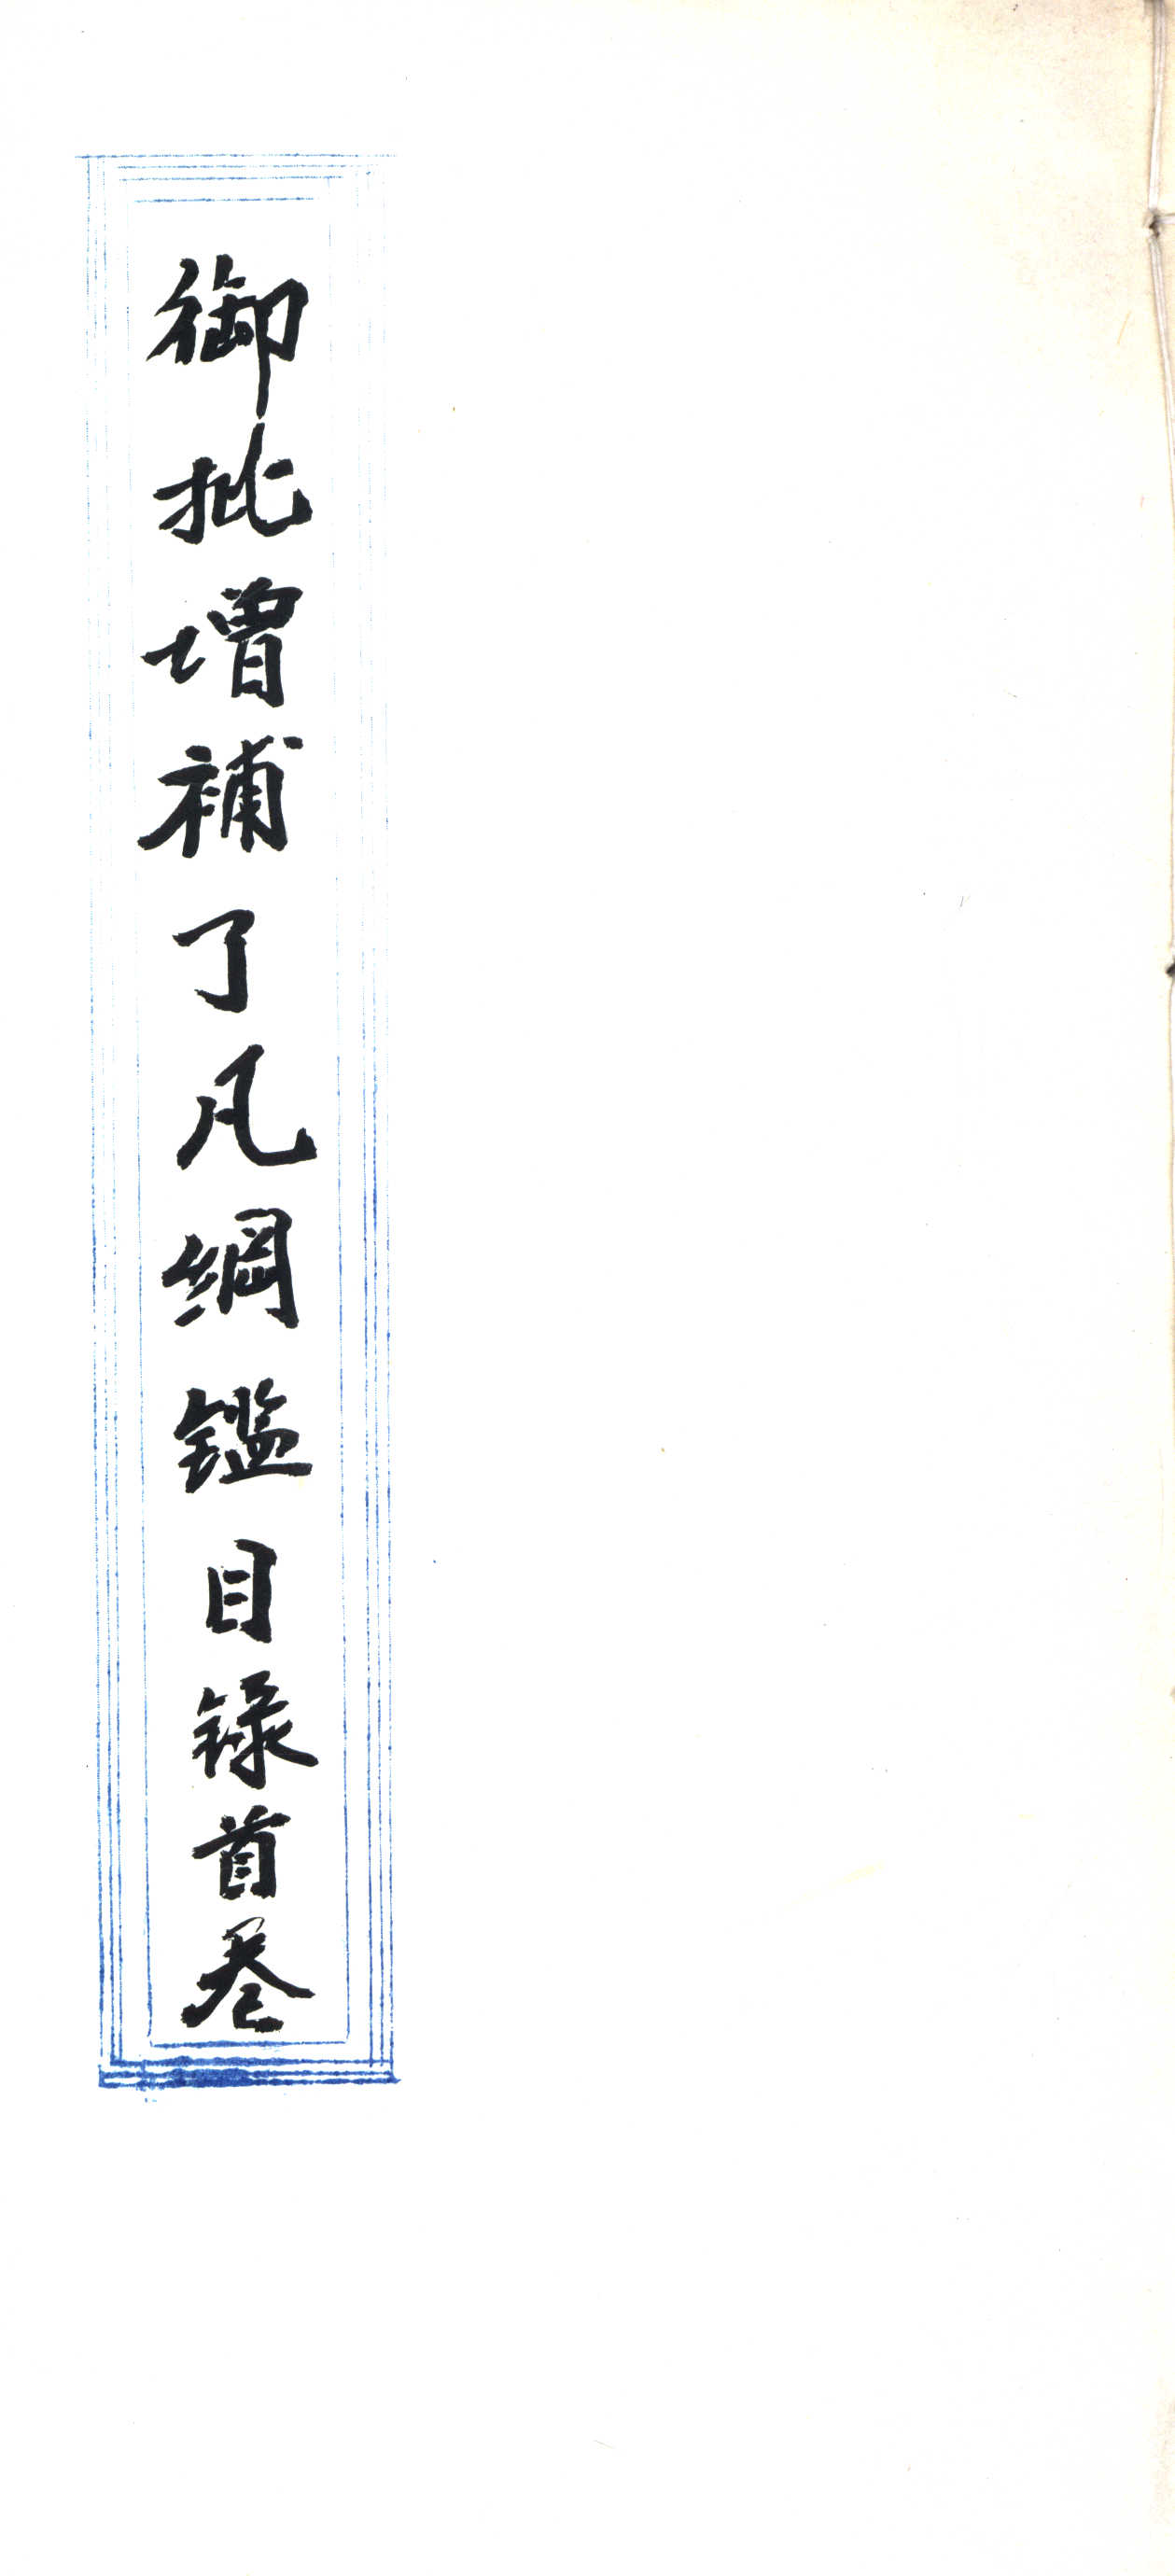 御批增補了凡綱鑑目録首巻